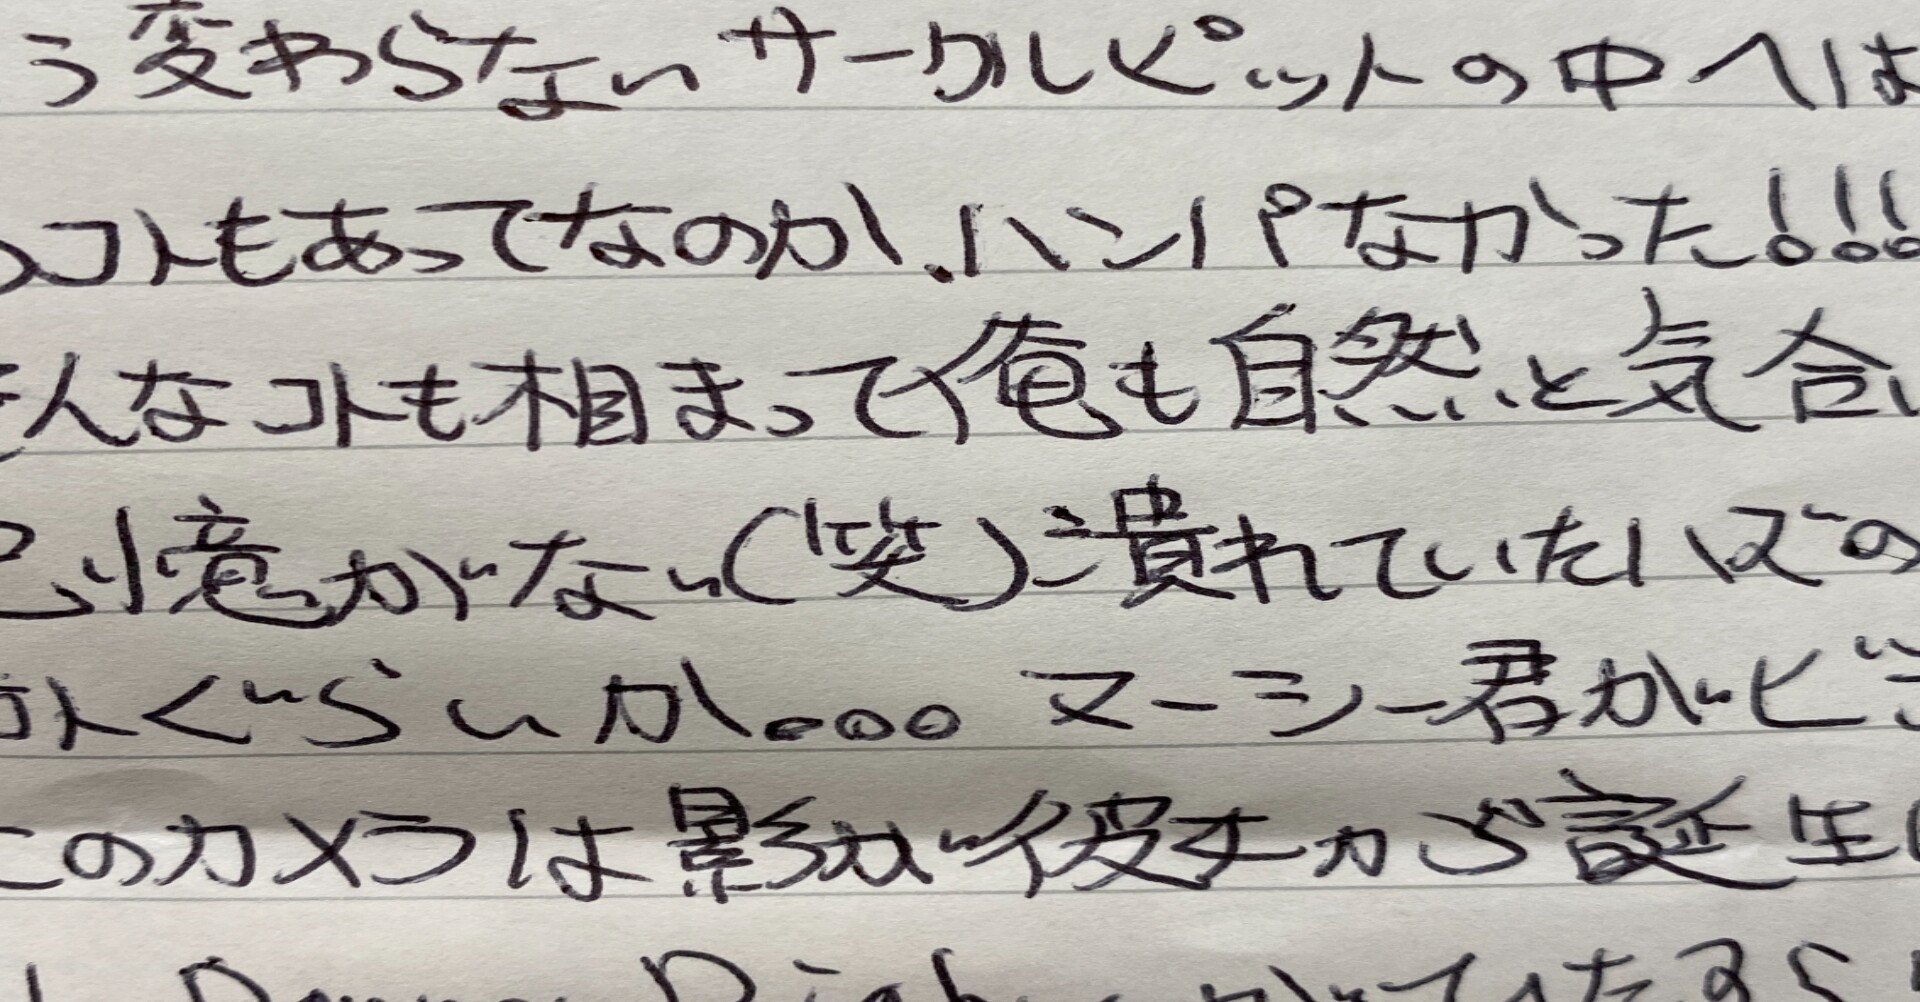 う変わらないサークルピットの中へは
コトもあってなのか、ハンパなかった!!!
そんなコトも相まって俺も自然と気合い
記憶がない(笑)潰れていたハズの
外ぐらいか。。。マーシー君がビ
このカメラは影が彼オから誕生